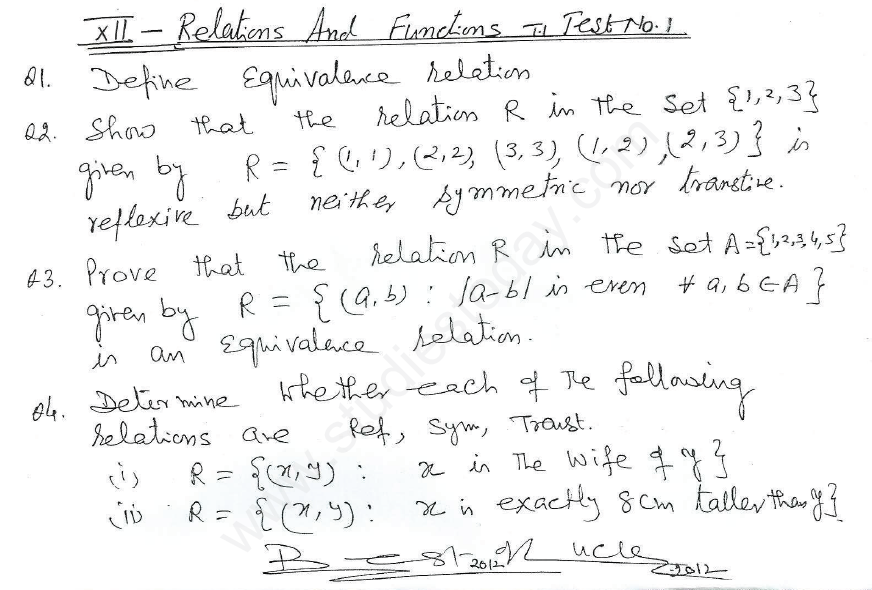 XII - Relations And Functions T.1 Test No.1
Q1. Define Equivalence relation
Q2. Show that the relation R in the set {1,2,3}
given by R = { (1,1), (2,2), (3,3), (1,2), (2,3) } is
reflexive but neither symmetric nor transtive.
Q3. Prove that the relation R in the set A={1,2,3,4,5}
given by R = { (a,b) : |a-b| is even ∀ a, b ∈ A }
is an Equivalence relation.
Q4. Determine whether each of the following
relations are Ref, Sym, Transt.
(i) R = {(x,y) : x is The Wife of y}
(ii) R = {(x,y) : x is exactly 8cm taller than y}
Best 2012 of 2012
www.studiestoday.com